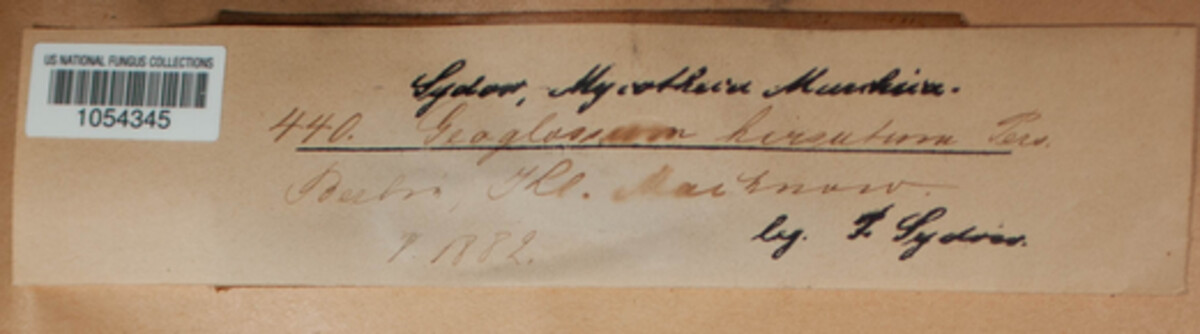 US NATIONAL FUNGUS COLLECTIONS
1054345
Sydow, Mycotheca Marchica.
440. Geoglossum hirsutum Pers.
Berlin, Kl. Machnow.
9. 1882.
leg. P. Sydow.